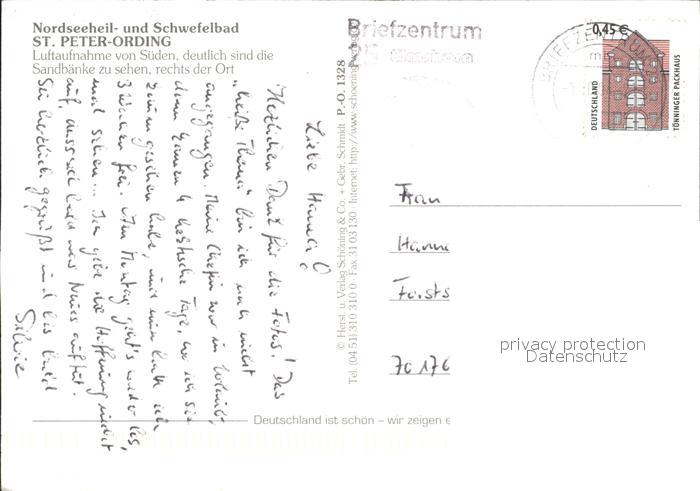 Nordseeheil- und Schwefelbad
ST. PETER-ORDING
Luftaufnahme von Süden, deutlich sind die
Sandbänke zu sehen, rechts der Ort
Liebe Hanne!
Herzlichen Dank für die Fotos! Das
"heiße Thema" bin ich noch nicht
angegangen. Meine Chefin war in Urlaub,
dann kamen 4 hektische Tage, wo ich sie
kaum gesehen habe, und nun hatte ich
3 Wochen frei. Am Montag geht's wieder los,
mal sehen... Ich gebe die Hoffnung nicht
auf, dass sich bald was Neues auftut.
Sei herzlich gegrüßt und bis bald
Silvie
© Herst. u. Verlag Schöning & Co. + Gebr. Schmidt · P.-O. 1328
Tel. (04 51) 310 310 0 · Fax 31 03 130 · Internet: http://www.schoening
Briefzentrum
BRIEFZENTRUM
0,45 €
DEUTSCHLAND
TÖNNINGER PACKHAUS
Frau
Hanne
Forsts
70176
privacy protection
Datenschutz
Deutschland ist schön – wir zeigen e